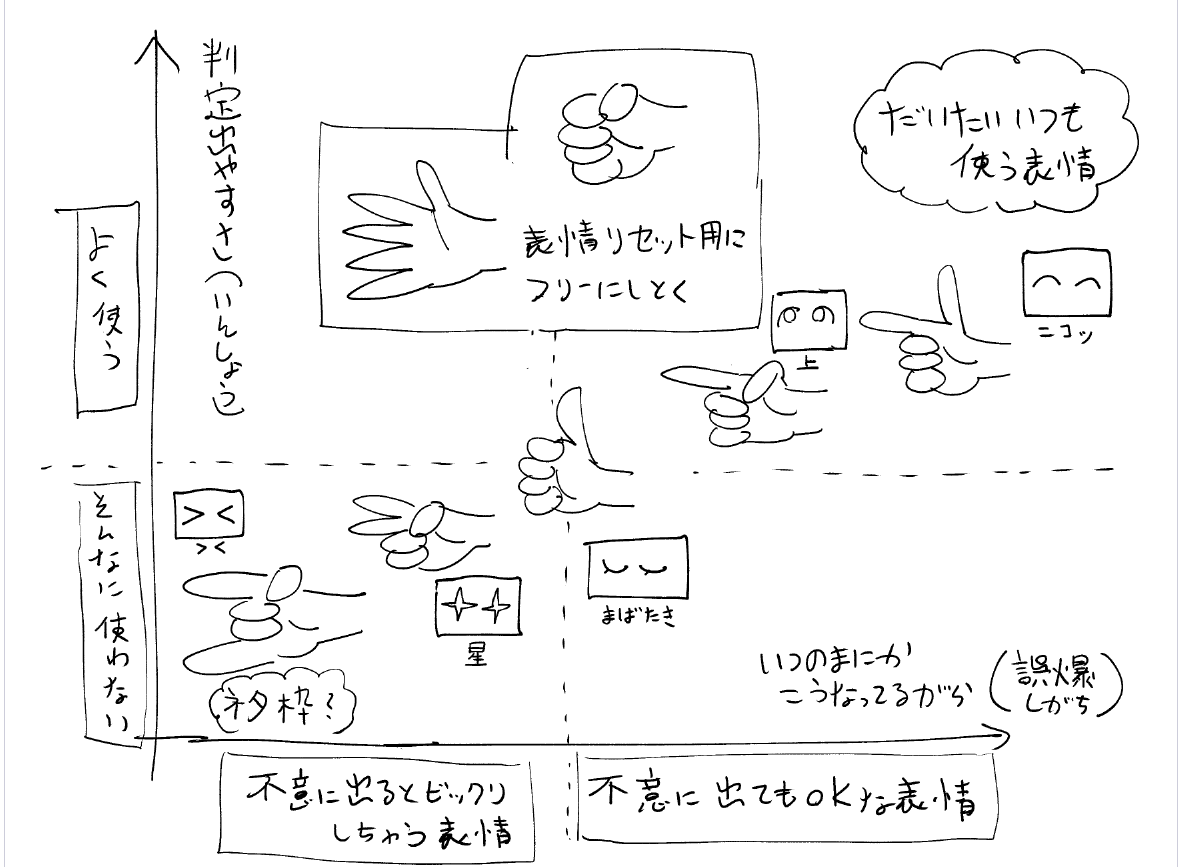 判定出やすさ(いんしょう)
よく使う
そんなに使わない
表情リセット用に
フリーにしとく
だいたいいつも
使う表情
ニコッ
上
><
星
まばたき
ネタ枠?
いつのまにか
こうなってるがち
(誤爆
しがち)
不意に出るとビックリ
しちゃう表情
不意に出てもOKな表情